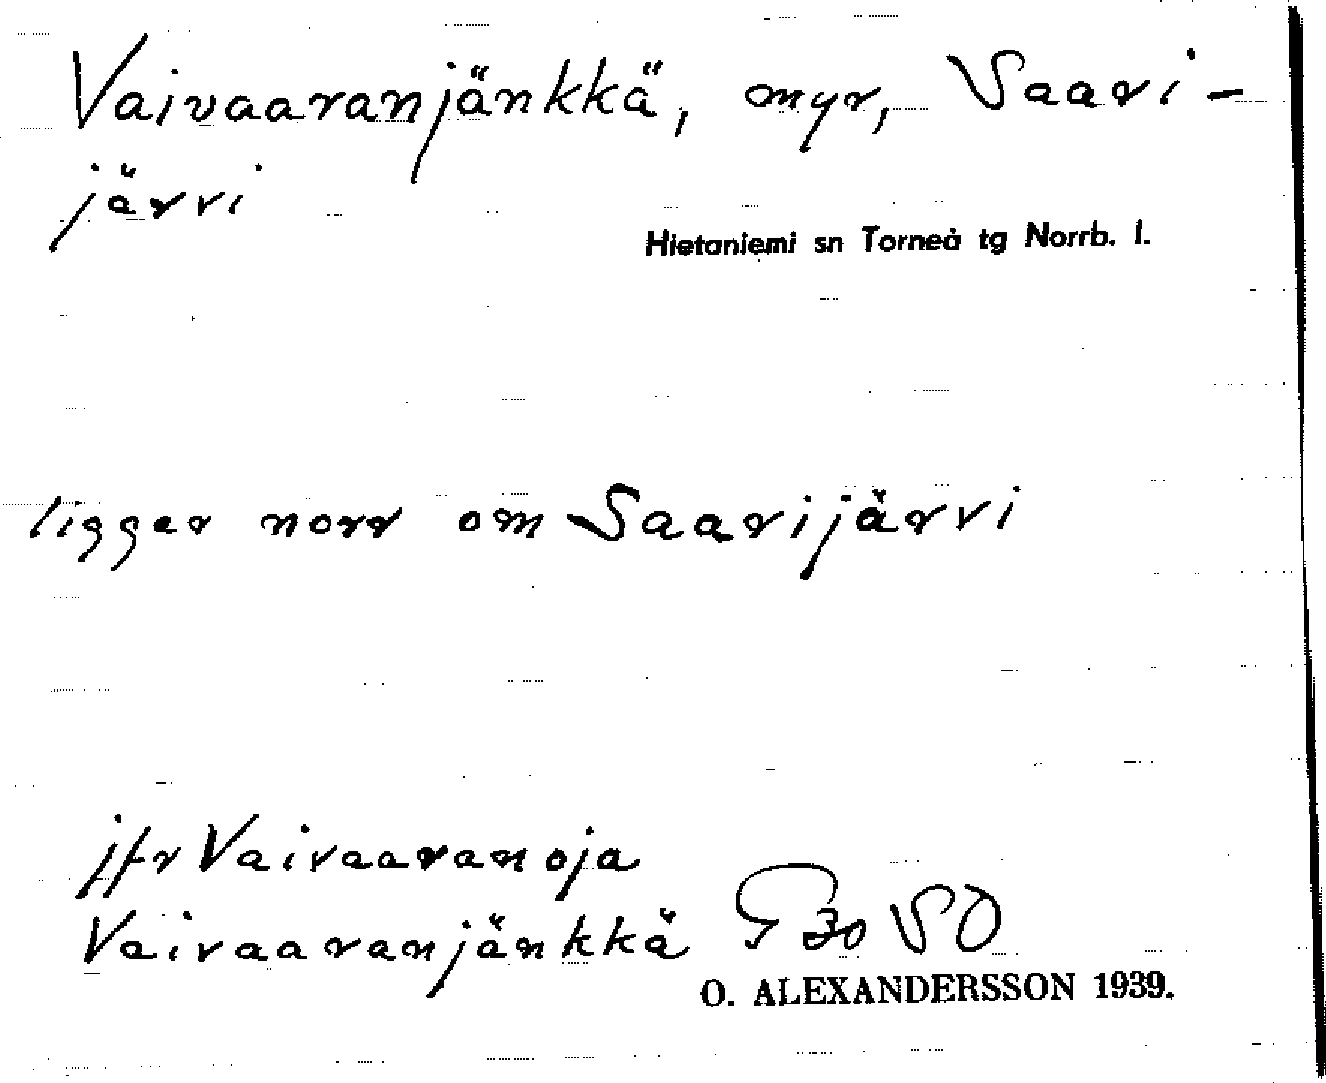 Vaivaaranjänkkä, myr, Saari-
järvi
Hietaniemi sn Torneå tg Norrb. l.
ligger norr om Saarijärvi
jfr Vaivaaranoja
Vaivaaranjänkkä G 30 SO
O. ALEXANDERSSON 1939.